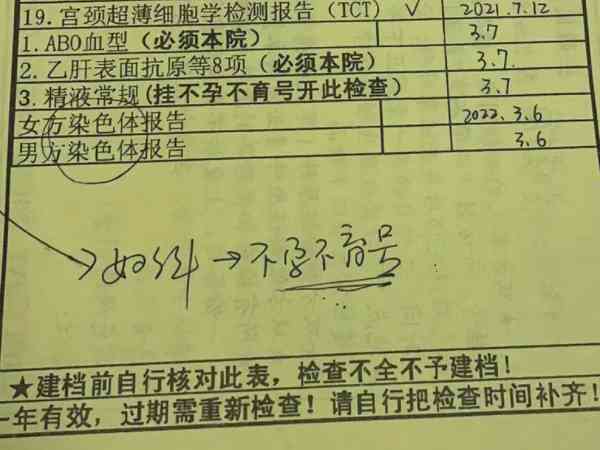 19. 宫颈超薄细胞学检测报告（TCT） √ 2021.7.12
1.ABO血型（必须本院） 3.7
2. 乙肝表面抗原等8项（必须本院） 3.7.
3. 精液常规(挂不孕不育号开此检查） 3.7
女方染色体报告 2022.3.6
男方染色体报告 3.6
→不孕不育号
★建档前自行核对此表，检查不全不予建档！
一年有效，过期需重新检查！请自行把检查时间补齐！